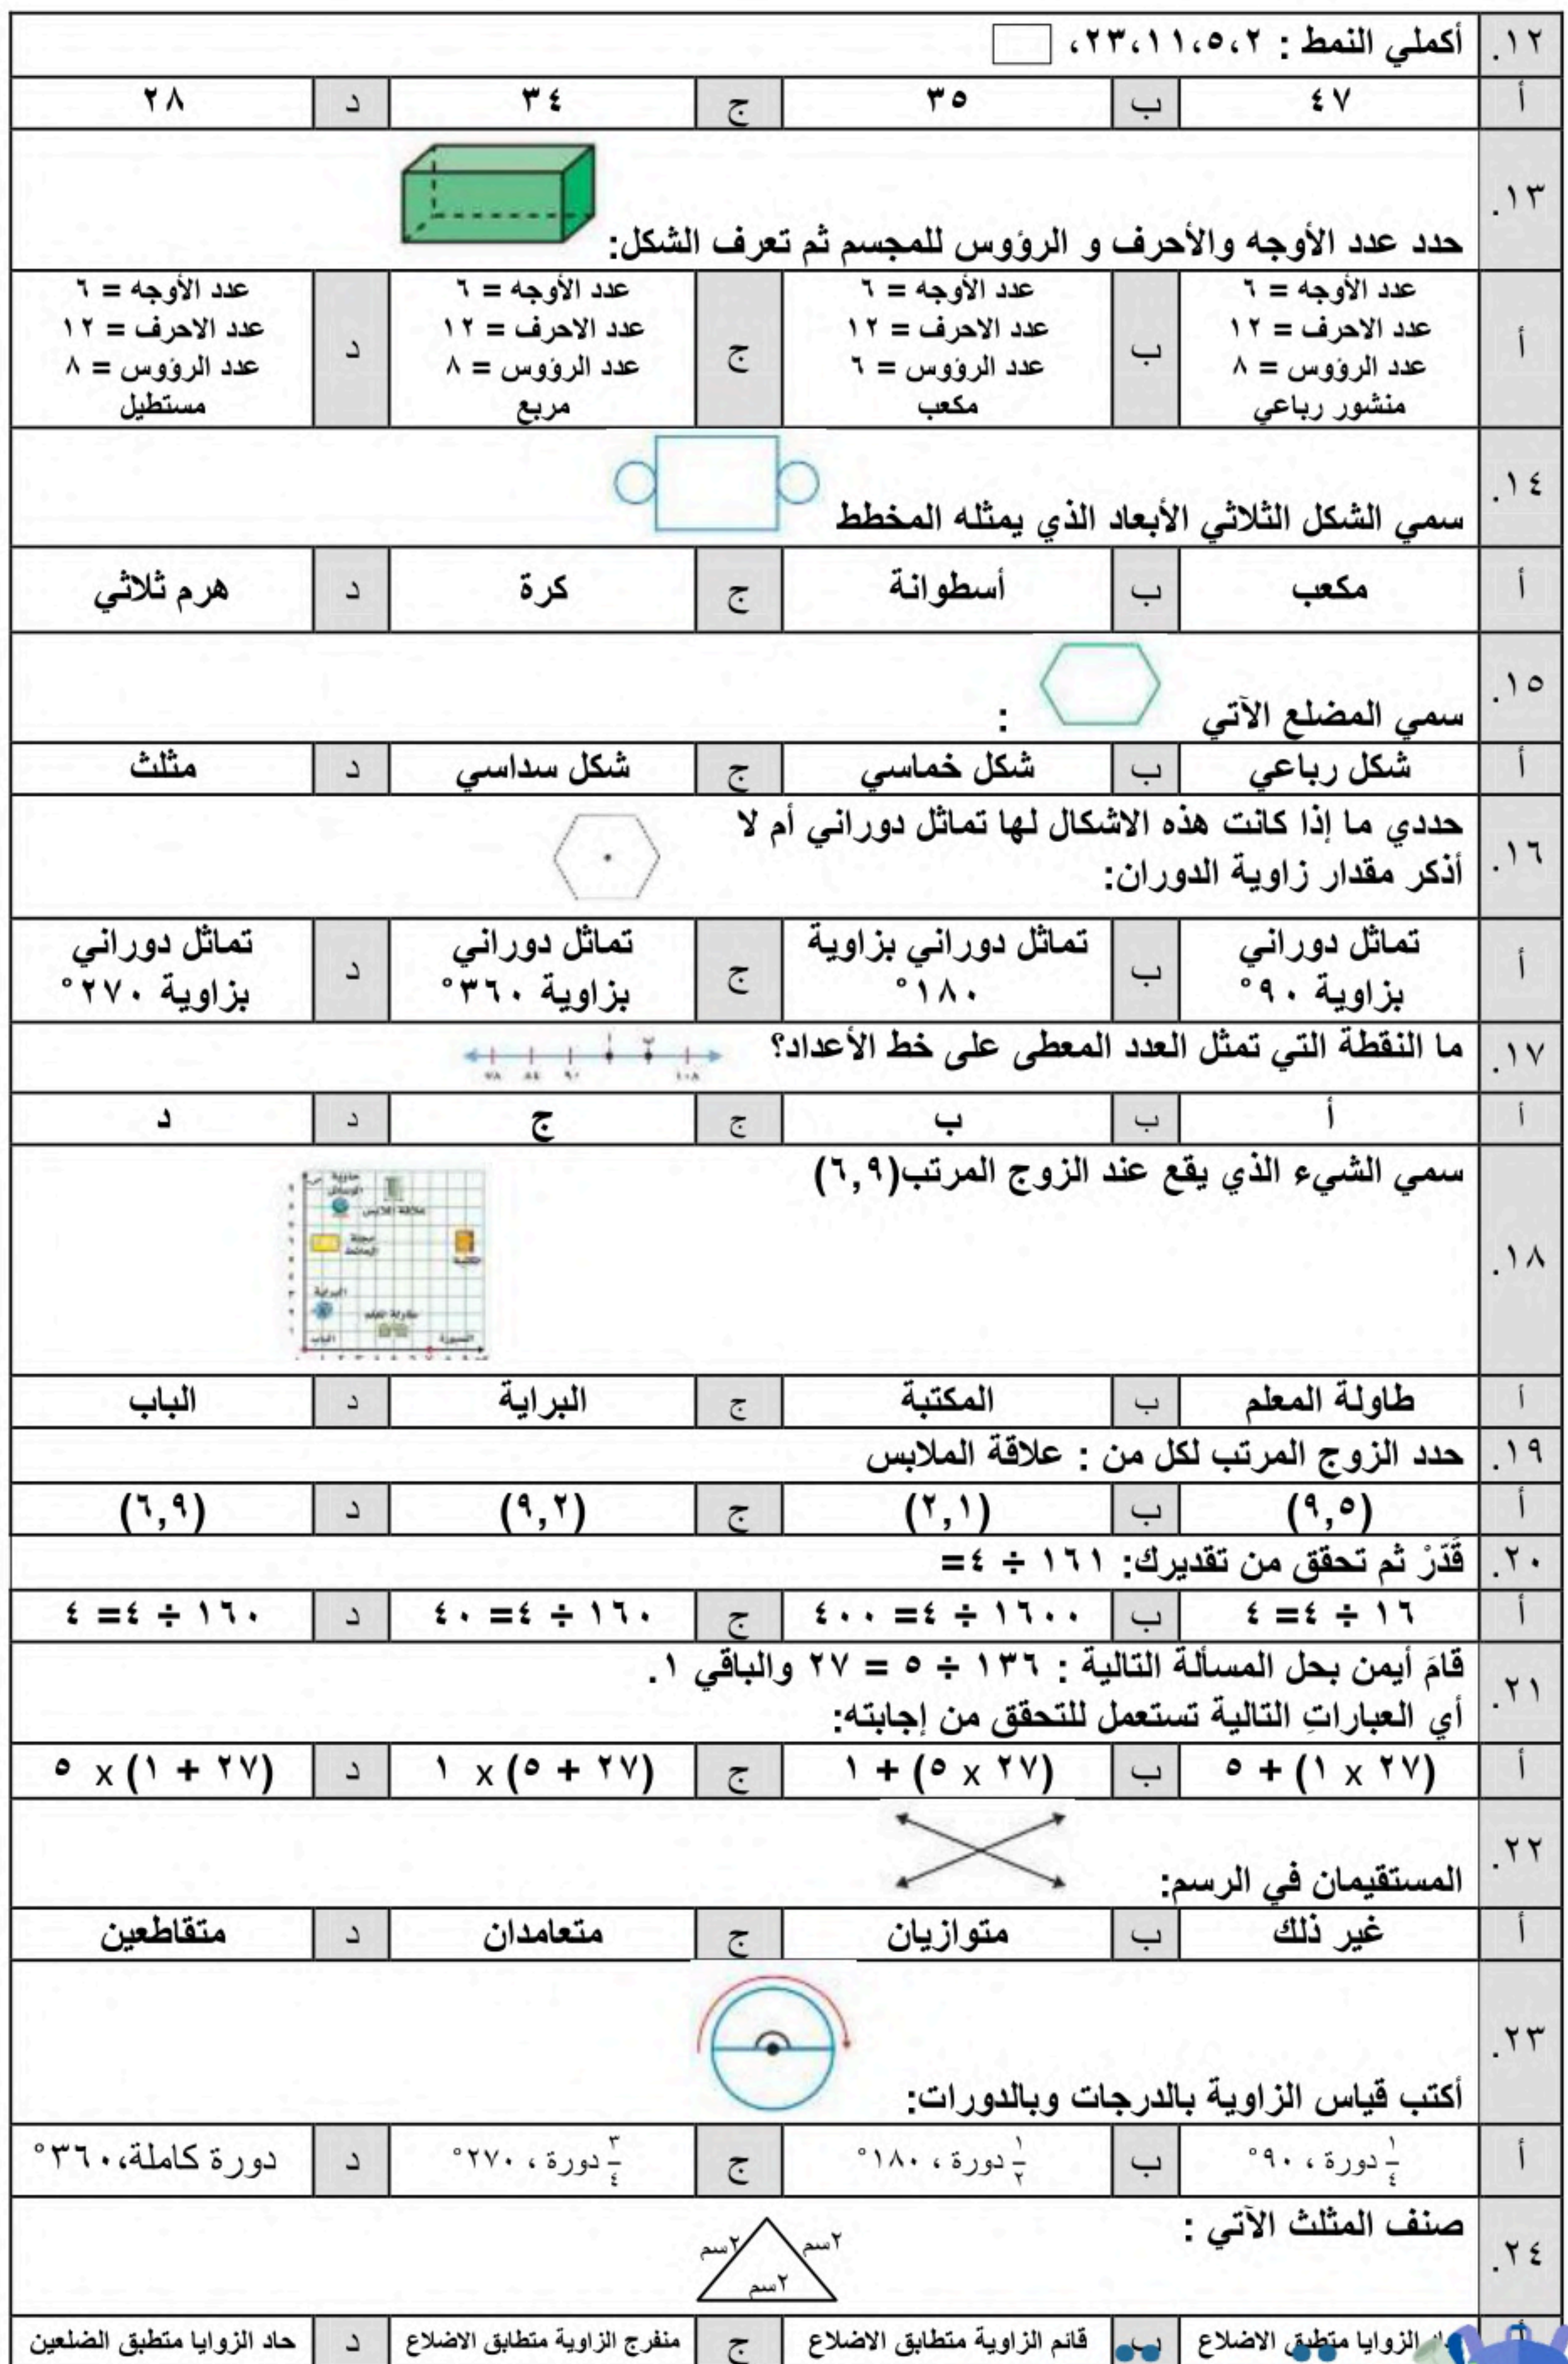 ١٢. أكملي النمط : ٢،٥،١١،٢٣،
أ ٤٧ ب ٣٥ ج ٣٤ د ٢٨
١٣.
حدد عدد الأوجه والأحرف و الرؤوس للمجسم ثم تعرف الشكل:
أ
عدد الأوجه = ٦
عدد الاحرف = ١٢
عدد الرؤوس = ٨
منشور رباعي
ب
عدد الأوجه = ٦
عدد الاحرف = ١٢
عدد الرؤوس = ٦
مكعب
ج
عدد الأوجه = ٦
عدد الاحرف = ١٢
عدد الرؤوس = ٨
مربع
د
عدد الأوجه = ٦
عدد الاحرف = ١٢
عدد الرؤوس = ٨
مستطيل
١٤. سمي الشكل الثلاثي الأبعاد الذي يمثله المخطط
أ مكعب ب أسطوانة ج كرة د هرم ثلاثي
١٥. سمي المضلع الآتي :
أ شكل رباعي ب شكل خماسي ج شكل سداسي د مثلث
١٦.
حددي ما إذا كانت هذه الاشكال لها تماثل دوراني أم لا
أذكر مقدار زاوية الدوران:
أ
تماثل دوراني
بزاوية ٩٠°
ب
تماثل دوراني بزاوية
١٨٠°
ج
تماثل دوراني
بزاوية ٣٦٠°
د
تماثل دوراني
بزاوية ٢٧٠°
١٧. ما النقطة التي تمثل العدد المعطى على خط الأعداد؟
أ ب
٧٨ ٨٤ ٩٠ ١٠٨
أ أ ب ب ج ج د د
١٨. سمي الشيء الذي يقع عند الزوج المرتب(٦,٩)
حاوية
علاقة الملابس
مجلة
الحائط
المكتبة
البراية
طاولة المعلم
الباب
السبورة
أ طاولة المعلم ب المكتبة ج البراية د الباب
١٩. حدد الزوج المرتب لكل من : علاقة الملابس
أ (٩,٥) ب (٢,١) ج (٩,٢) د (٦,٩)
٢٠. قَدّرْ ثم تحقق من تقديرك: ١٦١ ÷ ٤=
أ ١٦ ÷ ٤= ٤ ب ١٦٠٠ ÷ ٤= ٤٠٠ ج ١٦٠ ÷ ٤= ٤٠ د ١٦٠ ÷ ٤= ٤
٢١.
قامَ أيمن بحل المسألة التالية : ١٣٦ ÷ ٥ = ٢٧ والباقي ١.
أي العباراتِ التالية تستعمل للتحقق من إجابته:
أ (٢٧ x ١) + ٥ ب (٢٧ x ٥) + ١ ج (٢٧ + ٥) x ١ د (٢٧ + ١) x ٥
٢٢. المستقيمان في الرسم:
أ غير ذلك ب متوازيان ج متعامدان د متقاطعين
٢٣. أكتب قياس الزاوية بالدرجات وبالدورات:
أ ١/٤ دورة ، ٩٠° ب ١/٢ دورة ، ١٨٠° ج ٣/٤ دورة ، ٢٧٠° د دورة كاملة،٣٦٠°
٢٤. صنف المثلث الآتي :
٢سم ٢سم
٢سم
أ الزوايا متطبق الاضلاع ب قائم الزاوية متطابق الاضلاع ج منفرج الزاوية متطابق الاضلاع د حاد الزوايا متطبق الضلعين